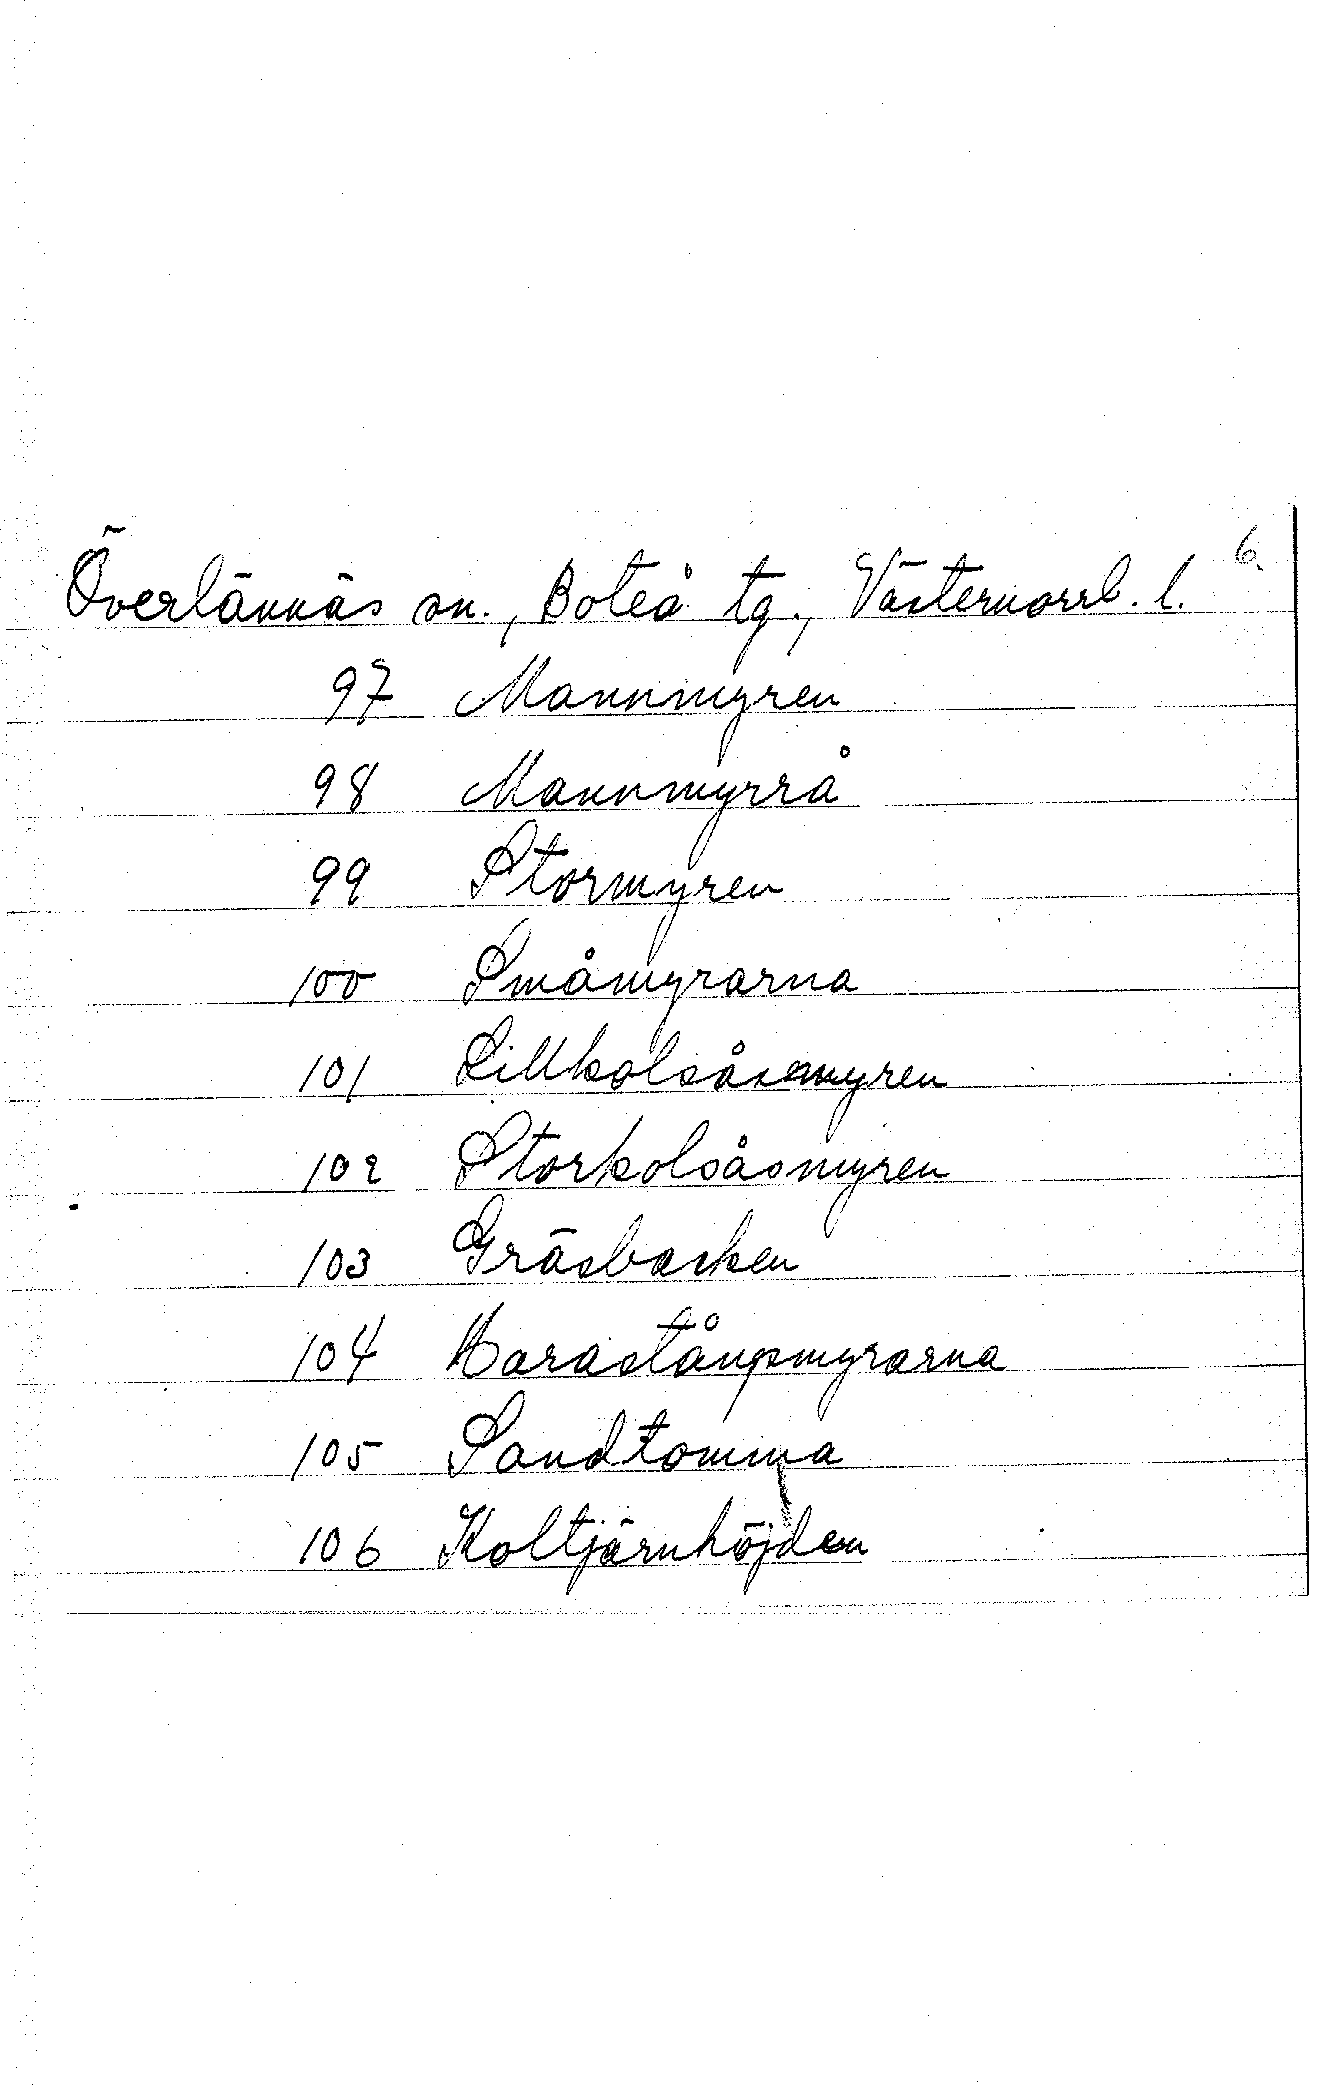 6.
Överlännäs sn., Boteå tg., Västernorrl. l.
97 Mannmyren
98 Mannmyrrå
99 Stormyren
100 Småmyrarna
101 Lillkolsåsmyren
102 Storkolsåsmyren
103 Gräsbacken
104 Harastångmyrarna
105 Sandtomma
106 Koltjärnhöjden